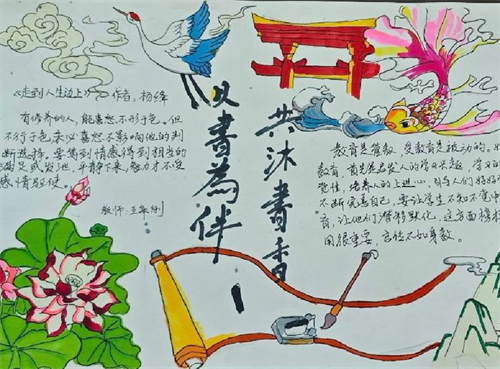 《走到人生边上》 作者：杨绛
有修养的人，能喜怒不形于色。但
不行于色未必喜怒不影响他的判
断选择。要等到情感得到相当的
满足或发泄，平静下来，智力才不受
感情驱使。
教师：王
以書為伴
共沐書香
教育是管教，受教育是被动的，好的
教育，首先是启发人的学习兴趣，学习的自
觉性，培养人的上进心，引导人们好好学
不断完善自己。要让学生不知不觉中
育，让他们潜移默化。这方面榜样
用很重要，言传不如身教。